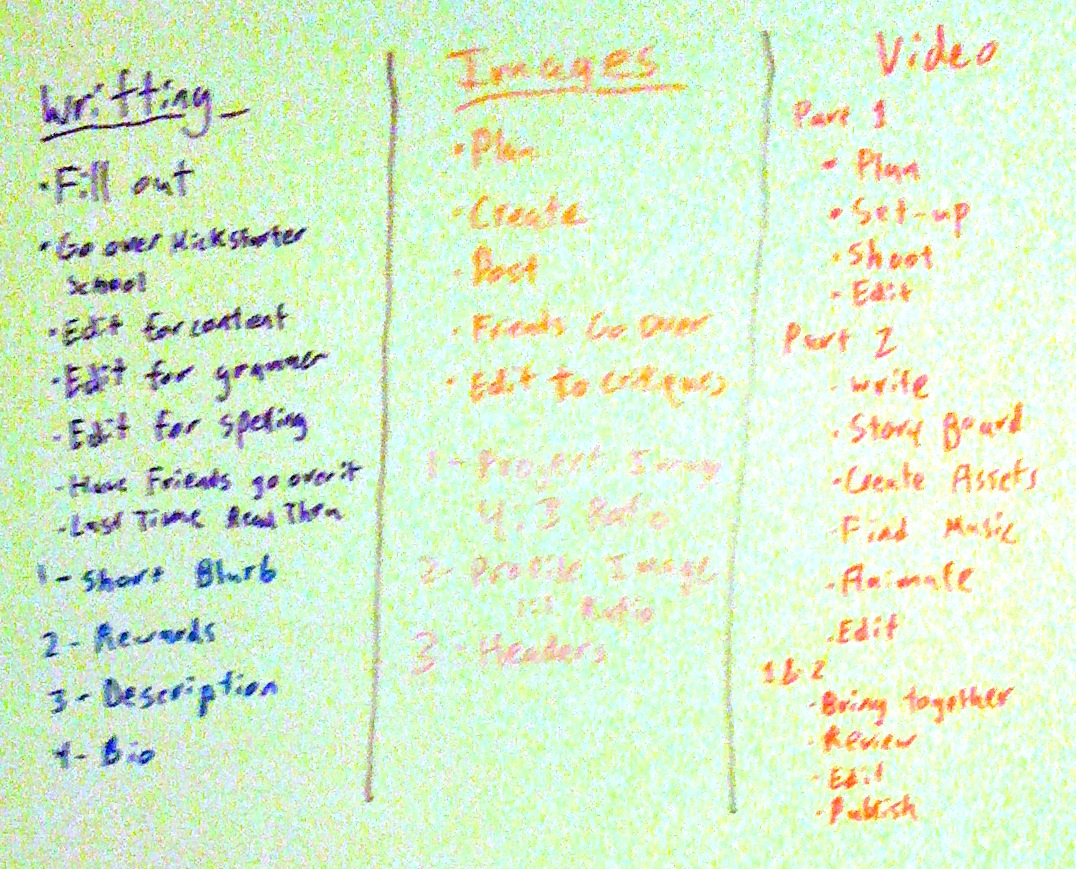 Writting
• Fill out
• Go over Kickstarter
School
• Edit for content
• Edit for grammer
- Edit for speling
- Have Friends go over it
- Last Time Read Thru
1 - Short Blurb
2 - Rewards
3 - Description
4 - Bio
Images
• Plan
• Create
• Post
• Friends Go Over
• Edit to critiques
1 - Project Image
4:3 Ratio
2 - Profile Image
1:1 Ratio
3 - Headers
Video
Part 1
• Plan
• Set-up
• Shoot
• Edit
Part 2
- write
• Story Board
• Create Assets
- Find Music
- Animate
- Edit
1 & 2
- Bring together
- Review
- Edit
- Publish